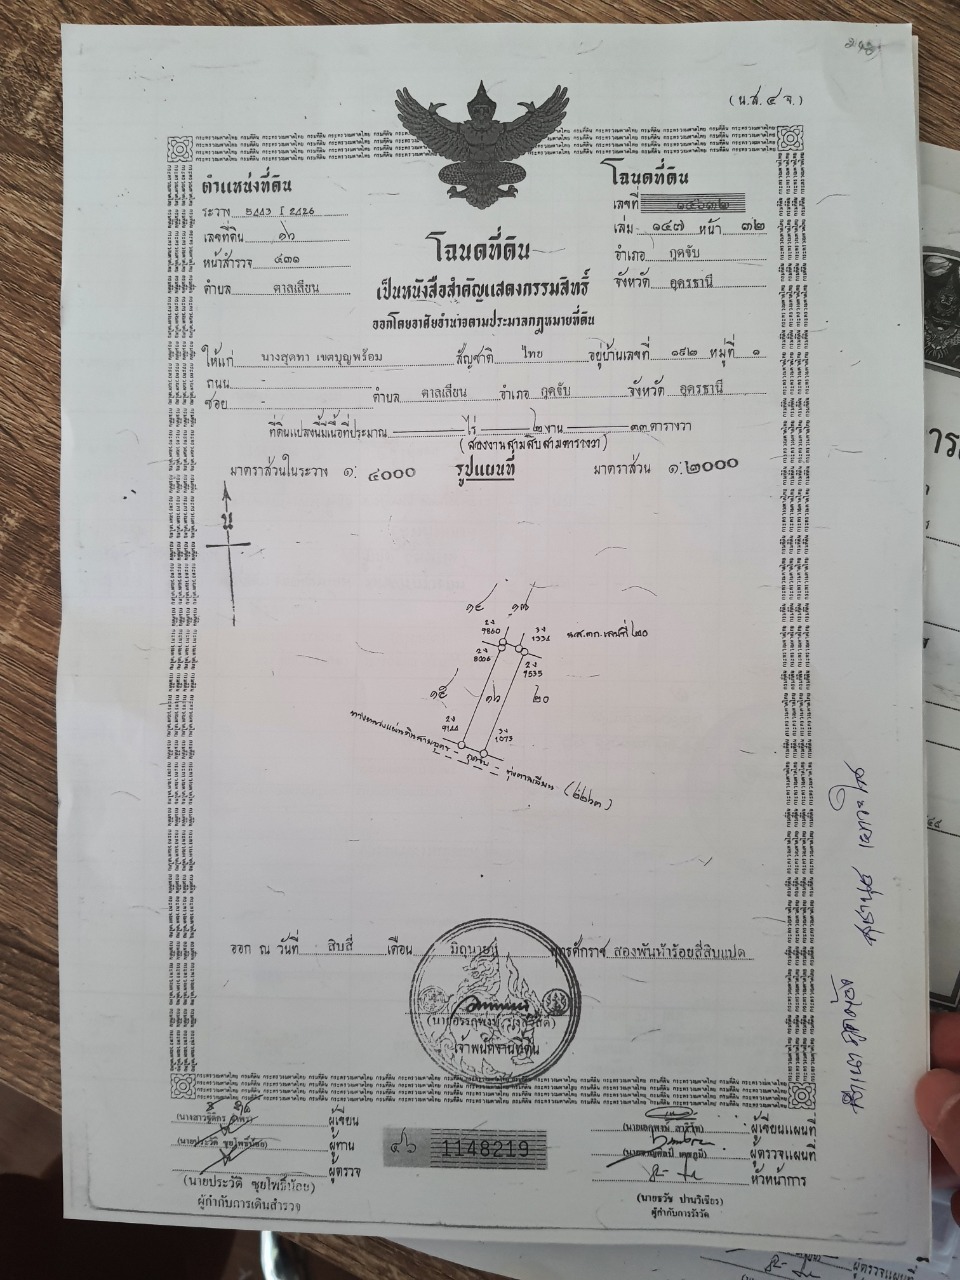 (น.ส.๔ จ.)
ตำแหน่งที่ดิน
ระวาง 5443 I 2426
เลขที่ดิน ๑๖
หน้าสำรวจ ๔๓๑
ตำบล ตาลเลียน
โฉนดที่ดิน
เลขที่ ๑๔๖๓๒
เล่ม ๑๔๗ หน้า ๓๒
อำเภอ กุดจับ
จังหวัด อุดรธานี
โฉนดที่ดิน
เป็นหนังสือสำคัญแสดงกรรมสิทธิ์
ออกโดยอาศัยอำนาจตามประมวลกฎหมายที่ดิน
ให้แก่ นางสุดทา เขตบุญพร้อม สัญชาติ ไทย อยู่บ้านเลขที่ ๑๙๒ หมู่ที่ ๑
ถนน -
ซอย - ตำบล ตาลเลียน อำเภอ กุดจับ จังหวัด อุดรธานี
ที่ดินแปลงนี้มีเนื้อที่ประมาณ ไร่ ๒ งาน ๓๓ ตารางวา
(สองงานสามสิบสามตารางวา)
มาตราส่วนในระวาง ๑: ๔๐๐๐ รูปแผนที่ มาตราส่วน ๑:๒๐๐๐
น
๑๔ ๑๗
2ง 9860 3ง 1334
น.ส.๓ก. เลขที่ ๒๐
2ง 8006 2ง 9535
๑๕ ๑๖ ๒๐
2ง 9144 3ง 1073
กุดจับ
ออก ณ วันที่ สิบสี่ เดือน มิถุนายน พุทธศักราช สองพันห้าร้อยสี่สิบแปด
เจ้าพนักงานที่ดิน
ผู้เขียน
ผู้ทาน
(นายประวัติ ชุยโพธิ์น้อย)
ผู้ตรวจ
(นายประวัติ ชุยโพธิ์น้อย)
ผู้กำกับการเดินสำรวจ
๔๖ 1148219
ผู้เขียนแผนที่
ผู้ตรวจแผนที่
หัวหน้าการ
(นายธวัช ปานวิเชียร)
ผู้กำกับการรังวัด
สำเนาถูกต้อง
ผู้ตรวจแผนที่